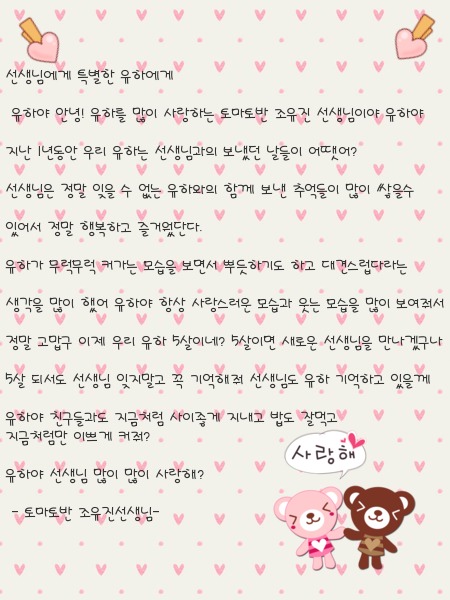 선생님에게 특별한 유하에게
유하야 안녕! 유하를 많이 사랑하는 토마토반 조유진 선생님이야 유하야
지난 1년동안 우리 유하는 선생님과의 보냈던 날들이 어땟어?
선생님은 정말 잊을 수 없는 유하와의 함께 보낸 추억들이 많이 쌓을수
있어서 정말 행복하고 즐거웠단다.
유하가 무럭무럭 커가는 모습을 보면서 뿌듯하기도 하고 대견스럽다라는
생각을 많이 했어 유하야 항상 사랑스러운 모습과 웃는 모습을 많이 보여줘서
정말 고맙구 이제 우리 유하 5살이네? 5살이면 새로운 선생님을 만나겠구나
5살 되서도 선생님 잊지말고 꼭 기억해줘 선생님도 유하 기억하고 있을게
유하야 친구들과도 지금처럼 사이좋게 지내고 밥도 잘먹고
지금처럼만 이쁘게 커줘?
사랑해
유하야 선생님 많이 많이 사랑해?
- 토마토반 조유진선생님-